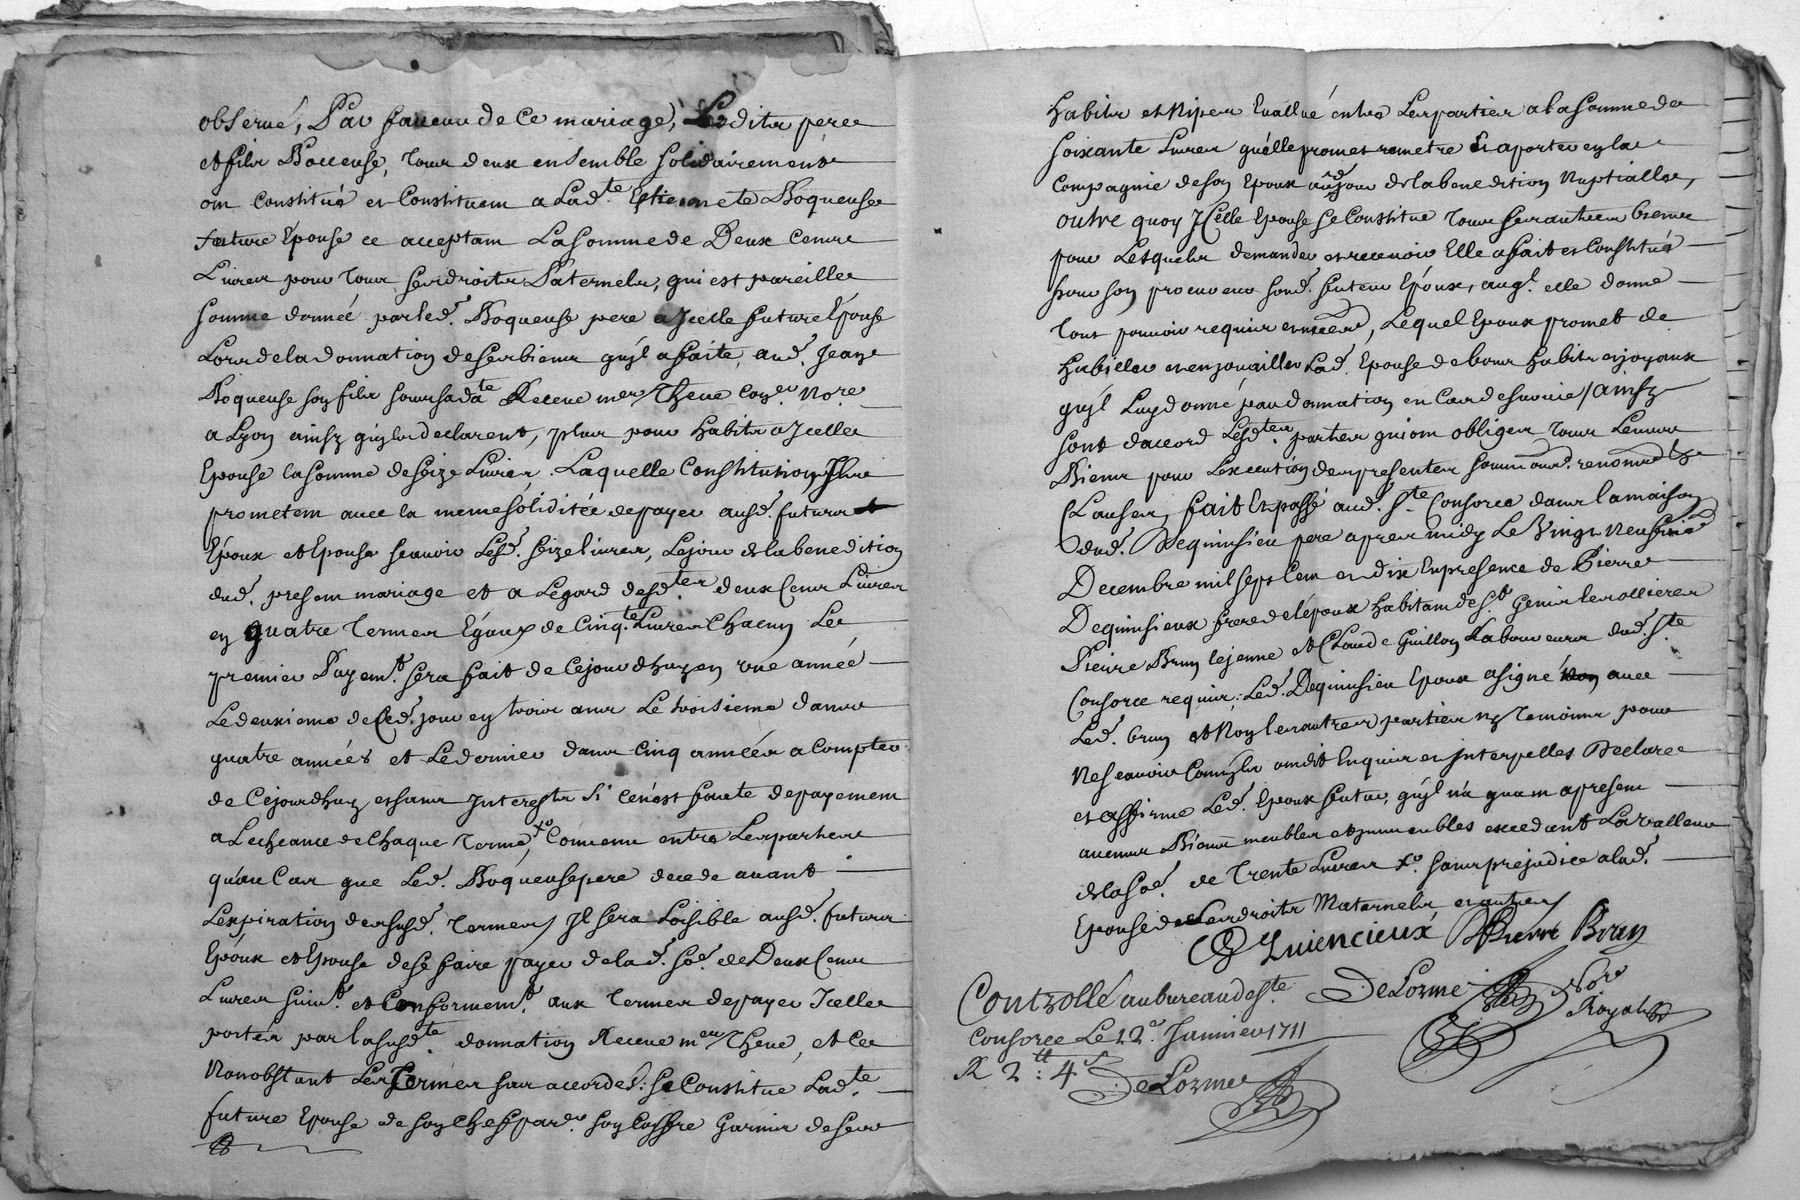 observé, Par faveur de ce mariage, Lesdits pere
et fils Boqueuse, tous deux ensemble solidairement
ont constitué et constituent a Lad.te Estiennete Boqueuse
future Epouse ce acceptant La somme de Deux cents
Livres pour tous ses droits Paternels, qui est pareille
somme donnée par led. Boqueuse pere a Jcelle future Epouse
Lors de la donnation de ses biens qu'il a faite, aud. Jean
Boqueuse son fils soubs sa datte Receue me Theve Con.er No.re
a Lyon ainsy qu'ils declarent, plus pour habits a Jcelle
Epouse la somme de seize Livres. Laquelle Constitution Jls
prometent avec la meme soliditée de payer ausd. futurs
Epoux et Epouse scavoir Lesd. seize livres, Le jour de la benedition
dud. present mariage et a L'egard desd.tes deux Cents Livres
en quatre termes Egaux de Cinq.te Livres Chacun Le
premier Payem.t sera fait de Cejourdhuy en une année
Le deuxieme de Ced. jour en trois ans Le troisieme dans
quatre années et Le dernier dans cinq années a compter
de Cejourdhuy et sans Jnterests si ce n'est faute de payement
a Lecheance de chaque terme, Convenu entre Les parties
qu'au Cas que Led. Boqueuse pere decede avant
L'expiration desusd. termes, Jl sera Loisible ausd. futurs
Epoux et Epouse de se faire payer de lad. so.e de Deux Cents
Livres suiv.t et Conformem.t aux termes de payer Jcelle
portés par la susd.te donnation Receue me Theve, et ce
Nonobstant Les termes sus accordés: se Constitue Lad.te
future Epouse de son chef par.er son coffre Garnir de ses
habits et Nipes Evallué entre Les parties a la somme de
soixante Livres qu'elle promet rometre et aporter en la
Compagnie de son Epoux aud. jour de la benedition Nuptialle,
outre quoy Jcelle Epouse se Constitue tous ses autres biens
pour Lesquels demander et recevoir Elle a fait et Constitué
pour son procureur sond. futur Epoux, auq.l elle donne
tout pouvoir requis et necess.e, Lequel Epoux promet de
habiller et enjouailler Lad. Epouse de bons habits et joyaux
qu'il Luy donne par donnation en Cas de survie / ainsy
sont daccord Lesd.tes parties qui ont obligés tous Leurs
Biens pour L'execution des presentes soumis aud. renoncé &
Clauses, fait et passé aud. S.te Consorce dans la maison
dud. Dequinsieu pere apres midy Le Vingt Neufvie
Decembre mil sept Cent et dix En presence de Pierre
Dequinsieux frere de l'epoux habitant de S.t Genis les ollieres
Pierre Brun le jeune et Claude Guillon Laboureurs dud. S.te
Consorce requis; Led. Dequinsieu Epoux a signé avec
Led. brun et Non les autres parties ny temoins pour
Ne scavoir Comme ils ont dit Enquis et interpelles Declare
et affirme Led. Epoux futur, qu'il n'a quant a present
aucuns Biens meubles et immeubles excedant La valleur
de la so.e de trente Livres sans prejudice a lad.
Epouse de Ses droits Maternels et autres
Quiencieux Pierre Brun
DeLorme No.re Royal
Controllé au bureau de S.te
Consorce Le 12.e Janvier 1711
R 2.tt 4.s
DeLorme